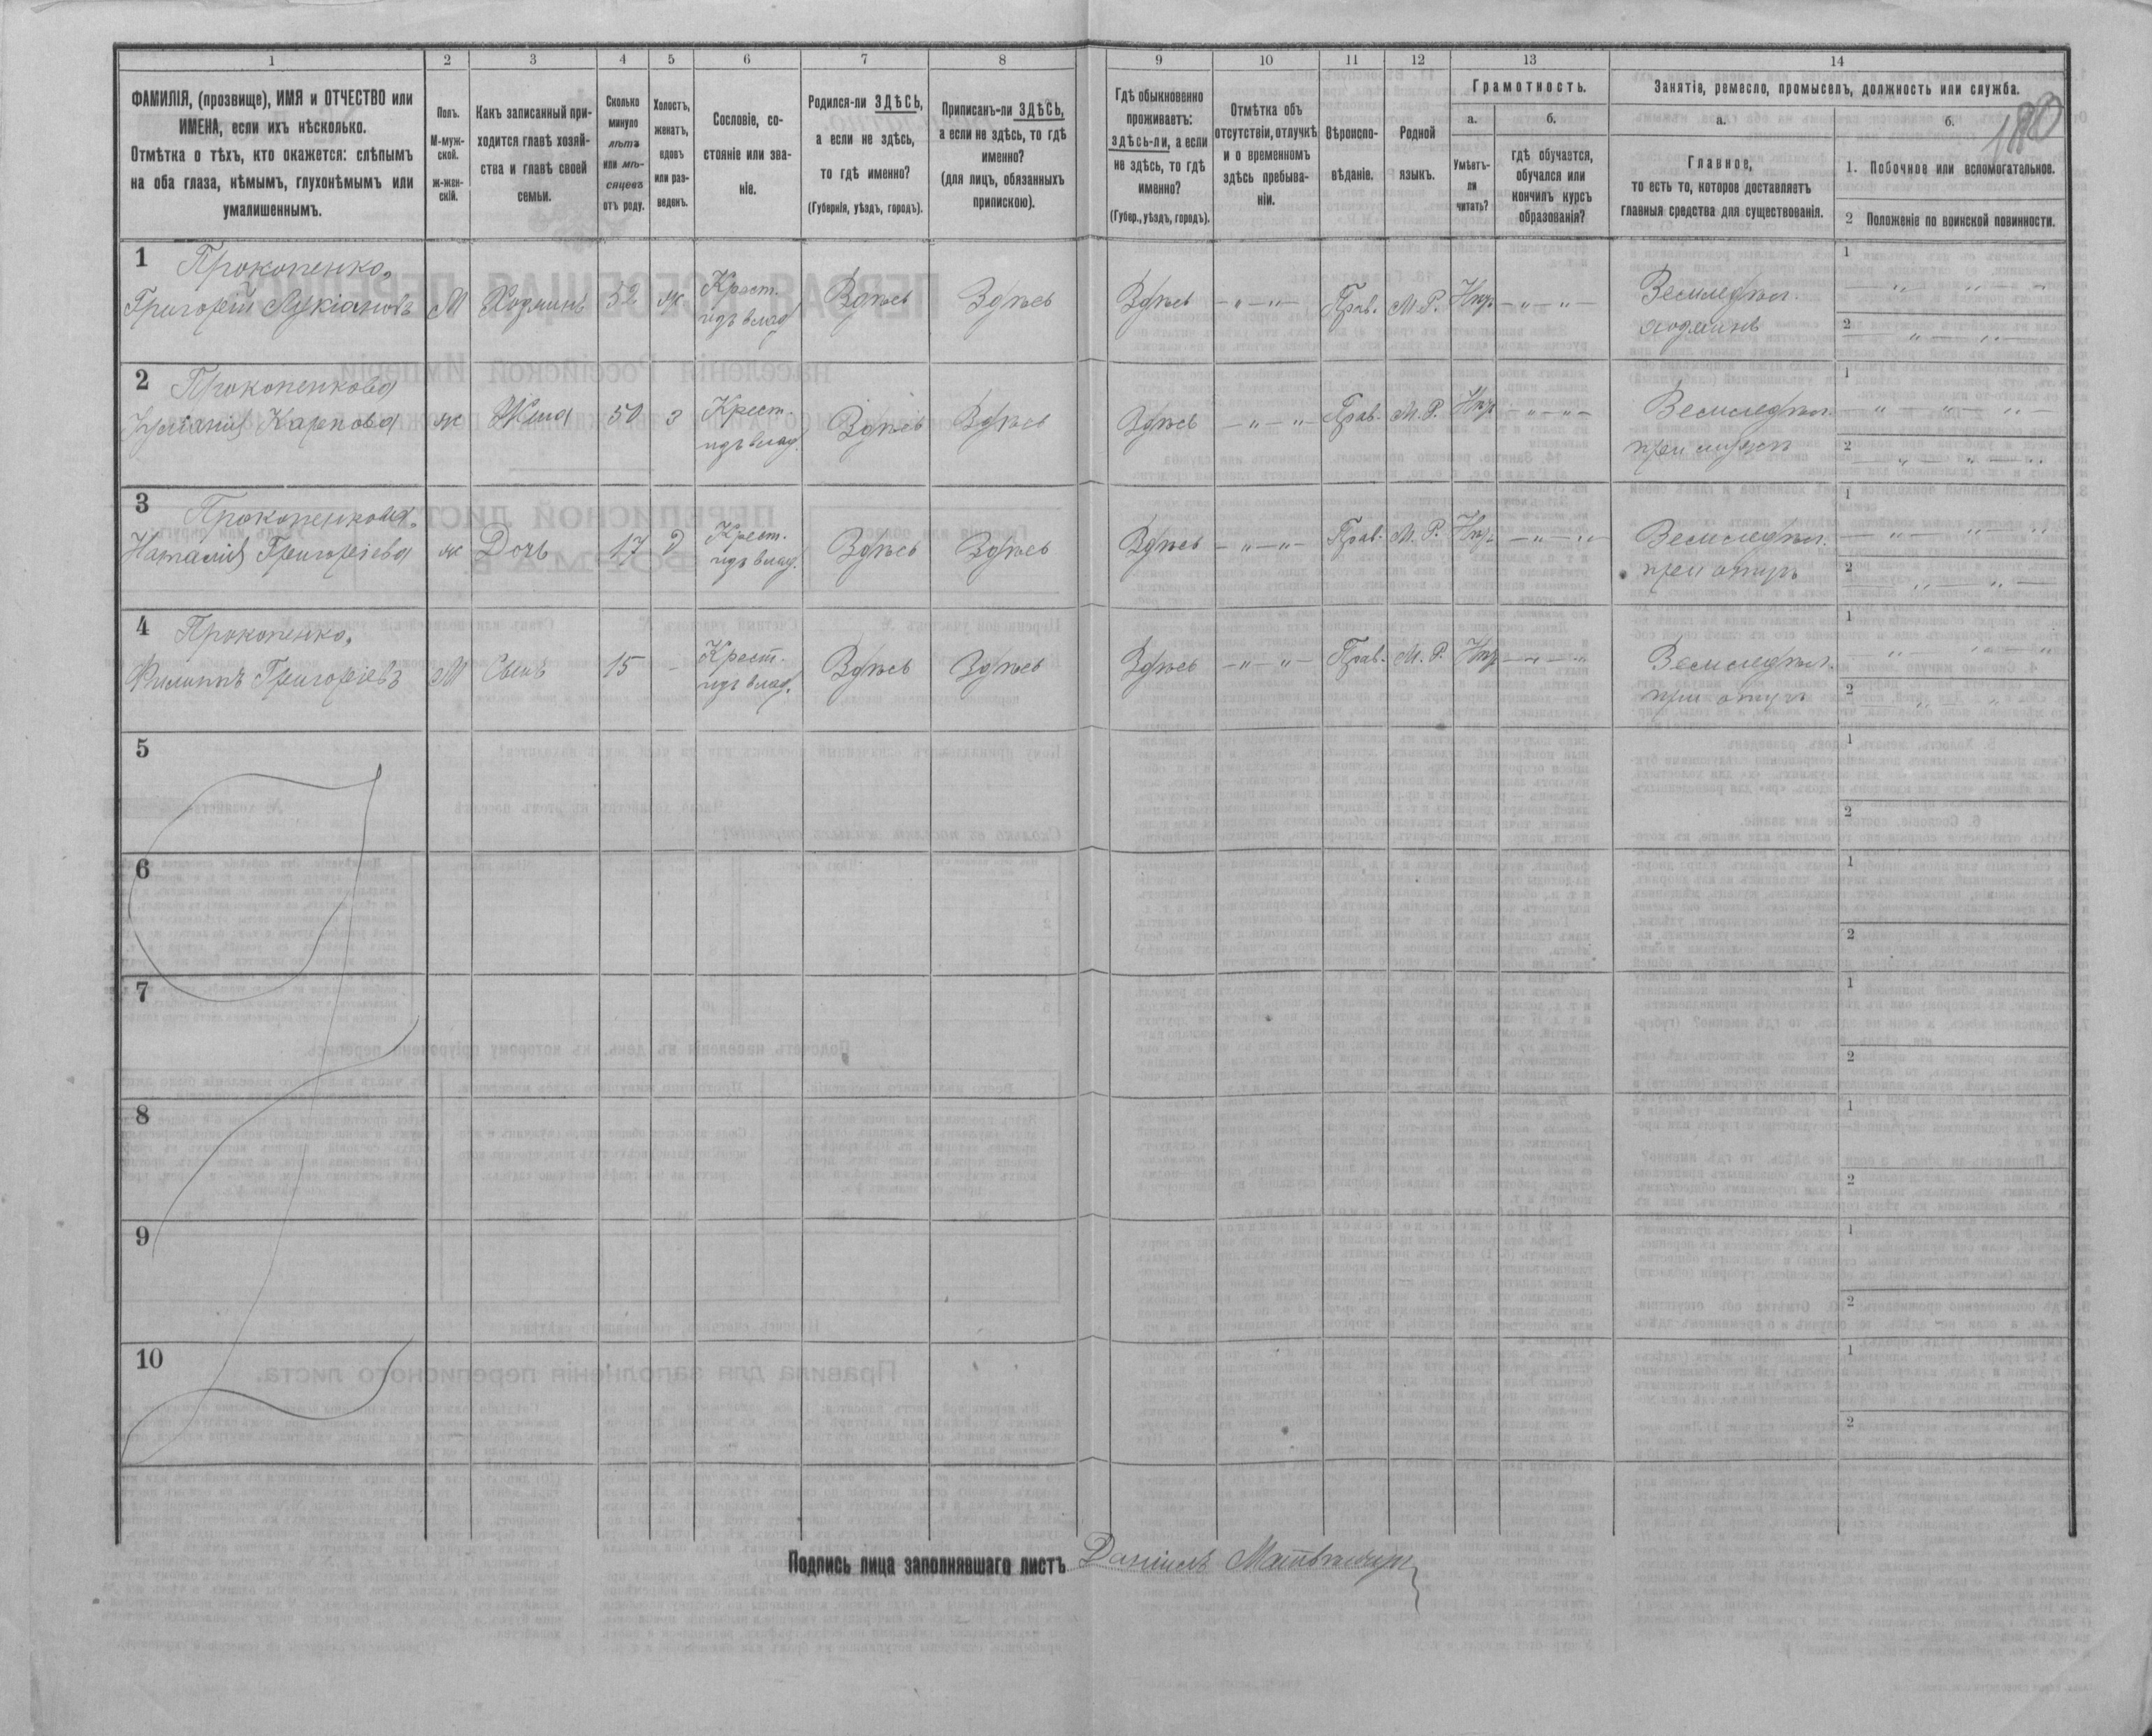 1 2 3 4 5 6 7 8 9 10 11 12 13 14
ФАМИЛІЯ, (прозвище), ИМЯ и ОТЧЕСТВО или
ИМЕНА, если ихъ нѣсколько.
Отмѣтка о тѣхъ, кто окажется: слѣпымъ
на оба глаза, нѣмымъ, глухонѣмымъ или
умалишеннымъ.
Полъ.
М-муж-
ской.
ж-жен-
скій.
Какъ записанный при-
ходится главѣ хозяй-
ства и главѣ своей
семьи.
Сколько
минуло
лѣтъ
или мѣ-
сяцевъ
отъ роду.
Холостъ,
женатъ,
вдовъ
или раз-
веденъ.
Сословіе, со-
стояніе или зва-
ніе.
Родился-ли ЗДѢСЬ,
а если не здѣсь,
то гдѣ именно?
(Губернія, уѣздъ, городъ).
Приписанъ-ли ЗДѢСЬ,
а если не здѣсь, то гдѣ
именно?
(для лицъ, обязанныхъ
припискою).
Гдѣ обыкновенно
проживаетъ:
здѣсь-ли, а если
не здѣсь, то гдѣ
именно?
(Губер., уѣздъ, городъ).
Отмѣтка объ
отсутствіи, отлучкѣ
и о временномъ
здѣсь пребыва-
ніи.
Вѣроиспо-
вѣданіе.
Родной
языкъ.
Грамотность.
а.
Умѣетъ-
ли
читать?
б.
гдѣ обучается,
обучался или
кончилъ курсъ
образованія?
Занятія, ремесло, промыселъ, должность или служба.
а.
Главное,
то есть то, которое доставляетъ
главныя средства для существованія.
б.
1. Побочное или вспомогательное.
2 Положеніе по воинской повинности.
1 Прокопенко,
Григорій Лукіановъ М Хозяинъ 52 ж Крест. Здѣсь Здѣсь Здѣсь —"—"— Прав. М.Р. Нѣтъ —"—"— Земледѣл. 1 —"—"—
изъ влад. хозяинъ 2 —"—"—
2 Прокопенкова
Карпова ж Жена 50 з Крест. Здѣсь Здѣсь Здѣсь —"—"— Прав. М.Р. Нѣтъ —"—"— Земледѣл. 1 —"—"—
изъ влад. при мужѣ 2 —"—"—
3 Прокопенкова,
Наталія Григоріева ж Дочь 17 д Крест. Здѣсь Здѣсь Здѣсь —"—"— Прав. М.Р. Нѣтъ —"—"— Земледѣл. 1 —"—"—
изъ влад. при отцѣ 2 —"—"—
4 Прокопенко,
Филиппъ Григоріевъ М Сынъ 15 - Крест. Здѣсь Здѣсь Здѣсь —"—"— Прав. М.Р. Нѣтъ —"—"— Земледѣл. 1 —"—"—
изъ влад. при отцѣ 2 —"—"—
5 1
2
6 1
2
7 1
2
8 1
2
9 1
2
10 1
2
Подпись лица заполнявшаго листъ